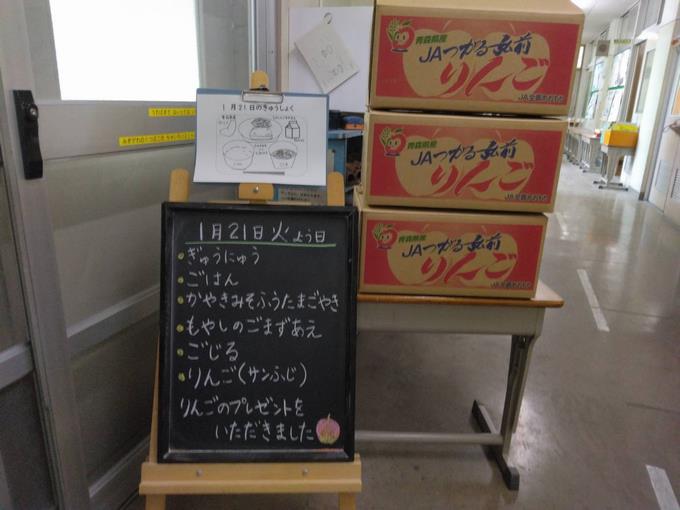 1月21日のきゅうしょく
1月21日火よう日
ぎゅうにゅう
ごはん
かやきみそふうたまごやき
もやしのごまずあえ
ごじる
りんご(サンふじ)
りんごのプレゼントを
いただきました
青森県産
JAつがる弘前
りんご
JA全農あおもり
青森県産
JAつがる弘前
りんご
JA全農あおもり
青森県産
JAつがる弘前
りんご
JA全農あおもり